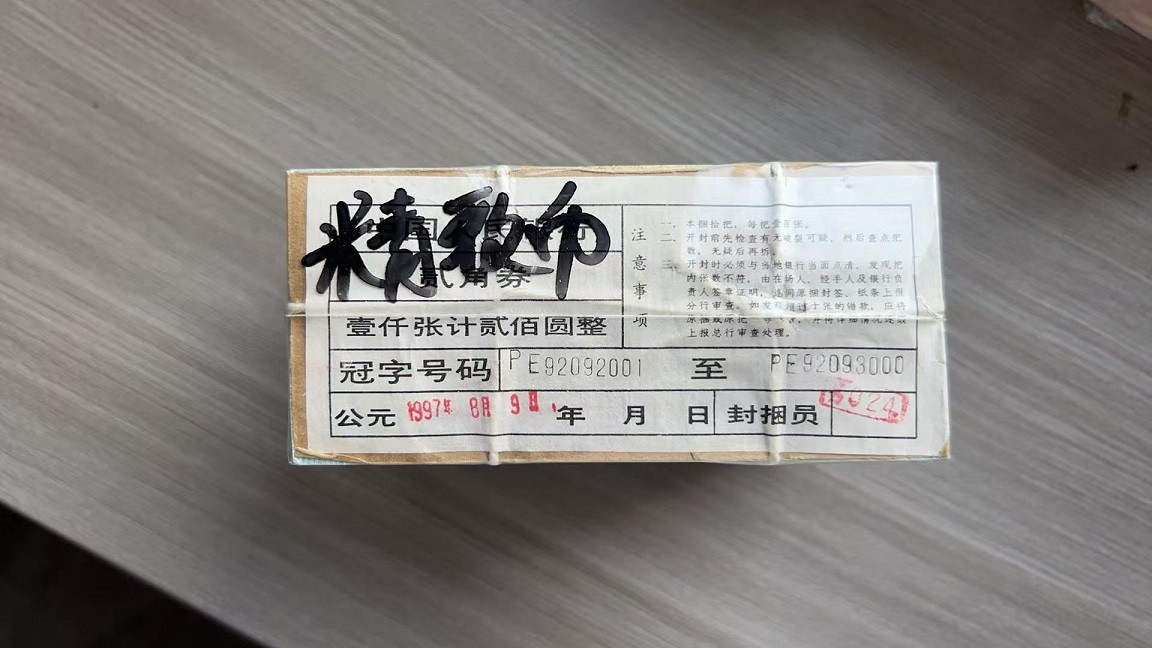 中国人民银行
贰角券
壹仟张计贰佰圆整
注意事项
一、本捆拾把,每把壹百张。
二、开封前先检查有无破裂可疑,然后查点把
数,无疑后再拆。
三、开封时必须与当地银行当面点清,发现把
内张数不符,由在场人、经手人及银行负
责人签章证明,连同原捆封签、纸条上报
分行审查。如发现超过十张的错款,应将
上报总行审查处理。
冠字号码 PE92092001 至 PE92093000
公元 1997年 8月 9日 年 月 日 封捆员 5024